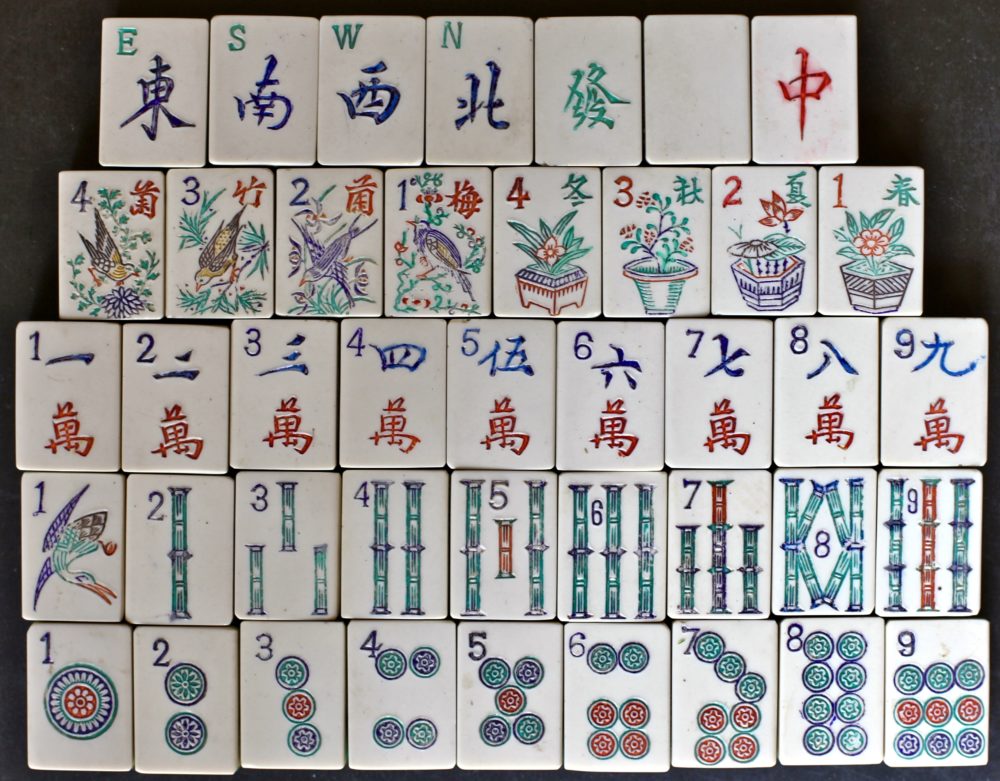 E S W N
東 南 西 北 發 中
4 菊 3 竹 2 蘭 1 梅 4 冬 3 秋 2 夏 1 春
1 一 2 二 3 三 4 四 5 伍 6 六 7 七 8 八 9 九
萬 萬 萬 萬 萬 萬 萬 萬 萬
1 2 3 4 5 6 7 8 9
1 2 3 4 5 6 7 8 9